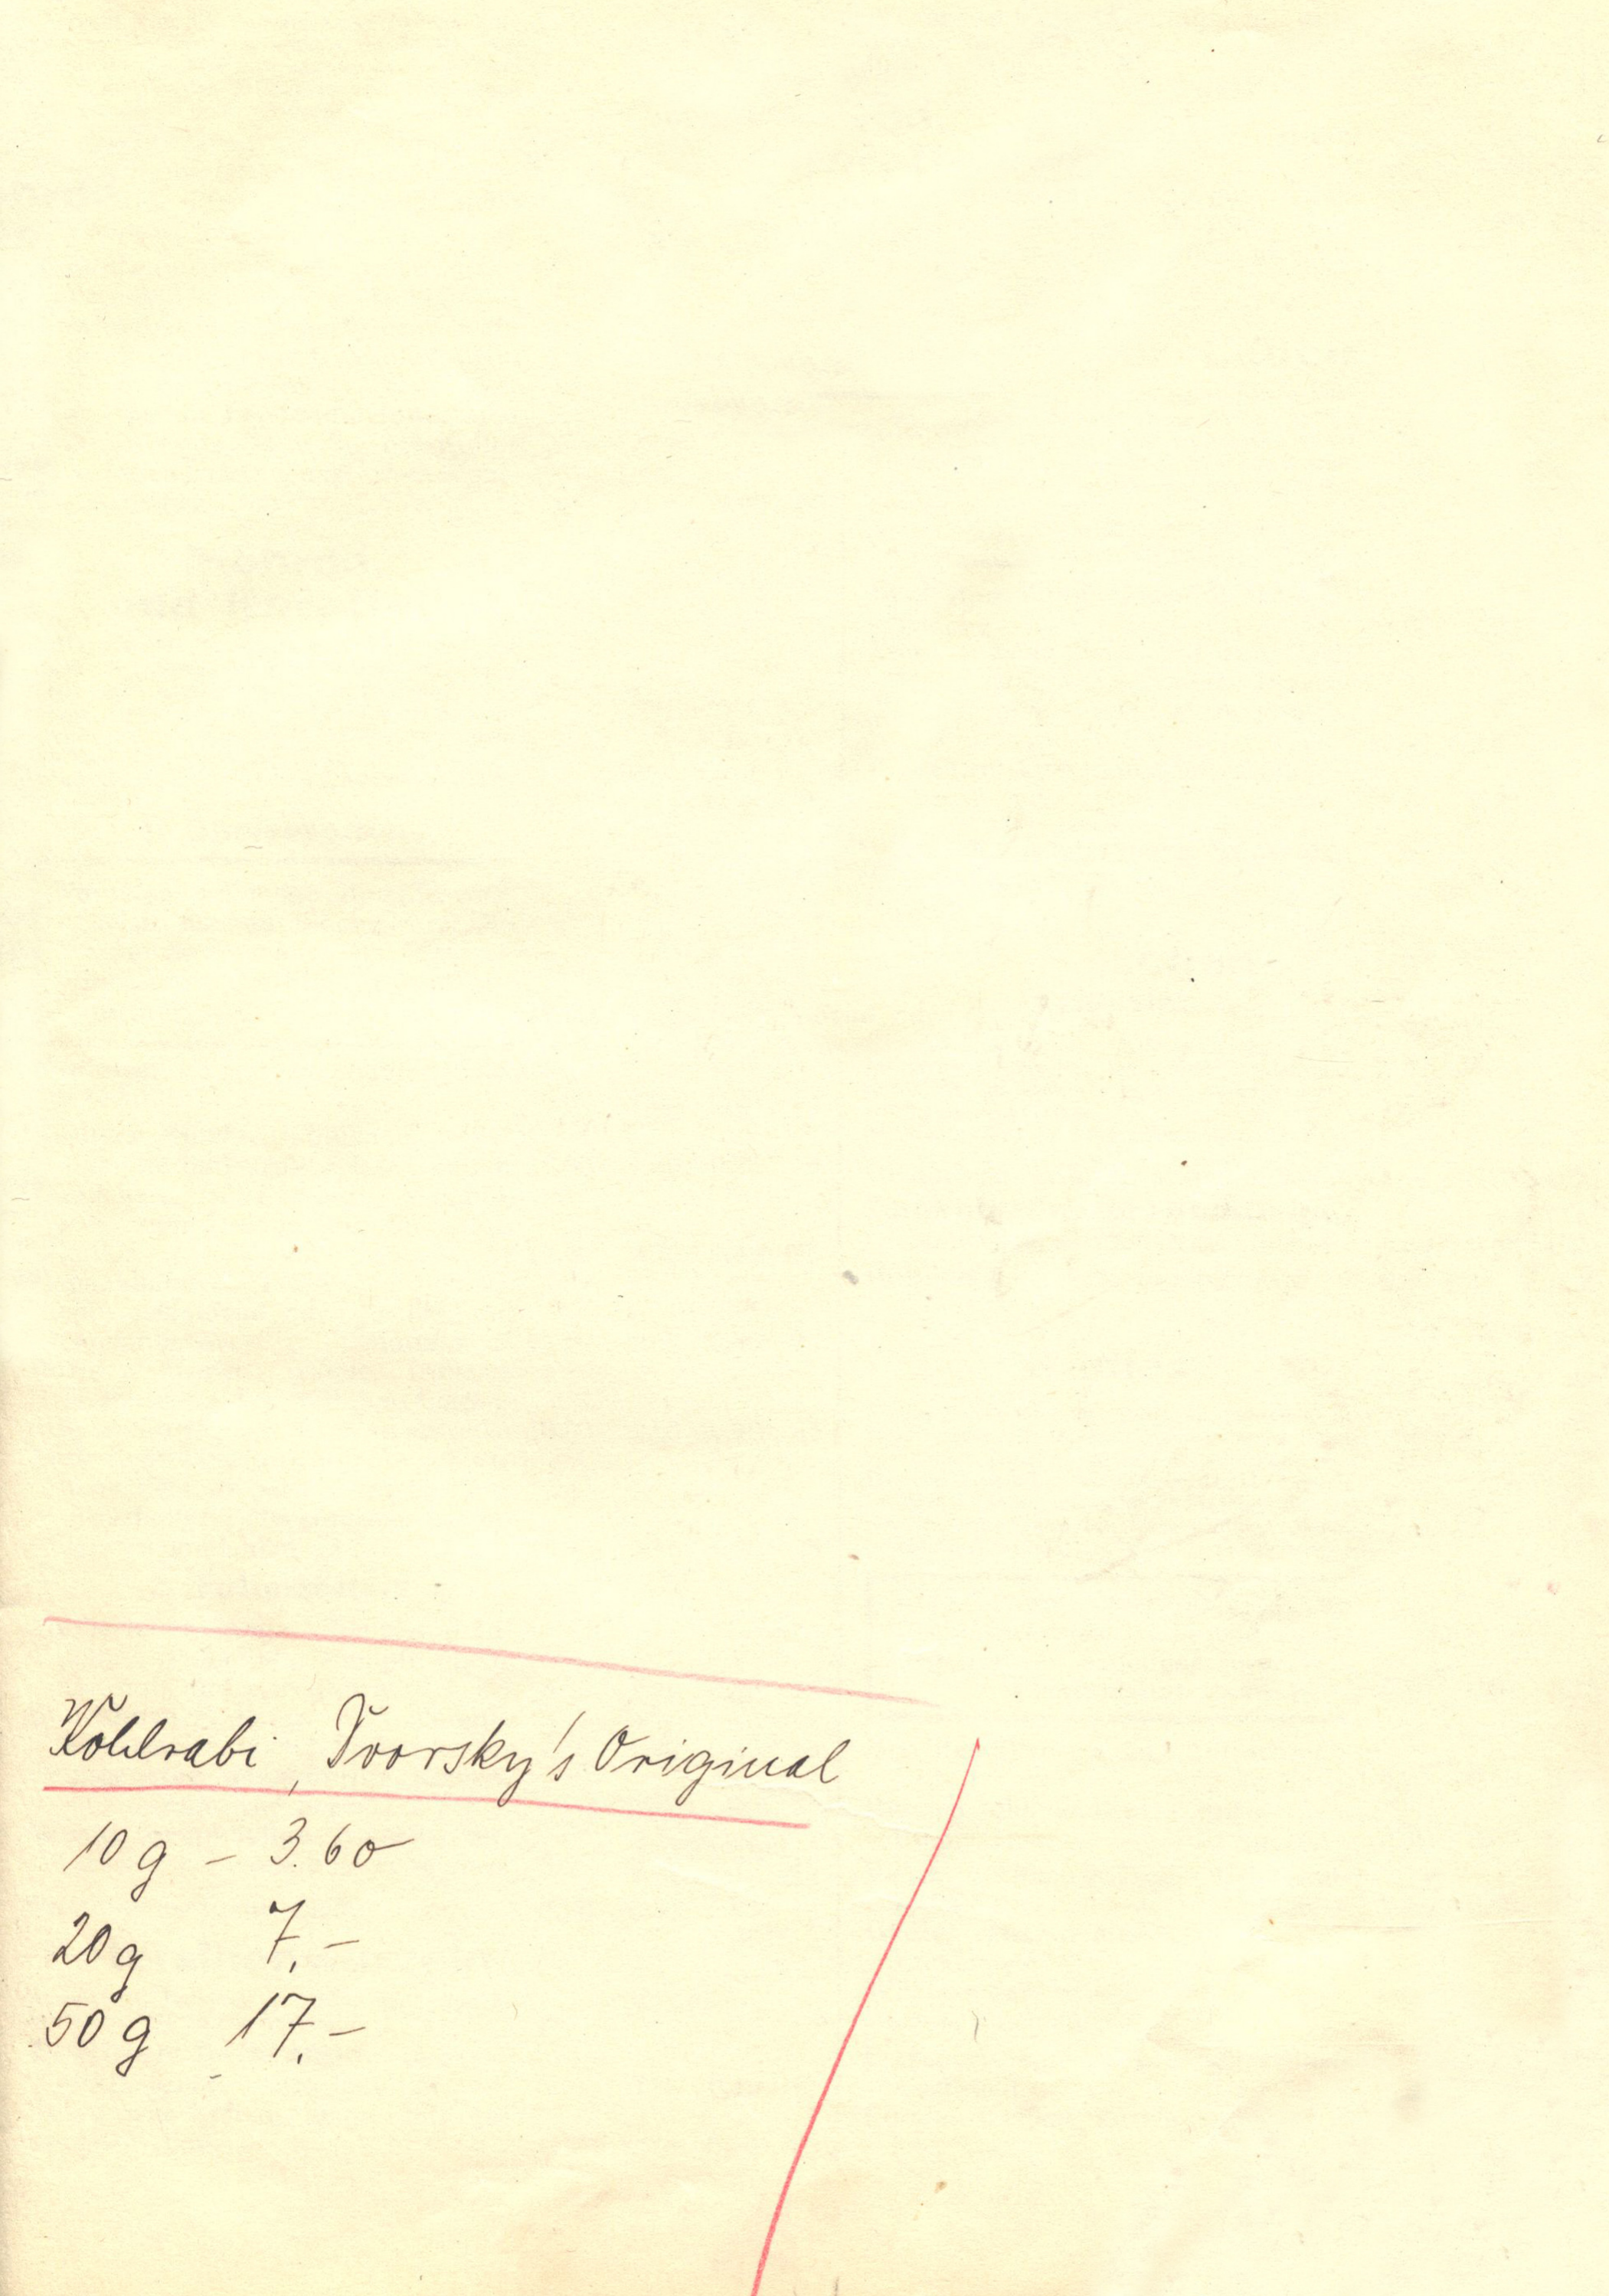 Kohlrabi, Dvorsky's Original
10 g – 3.60
20 g 7.–
50 g 17.–